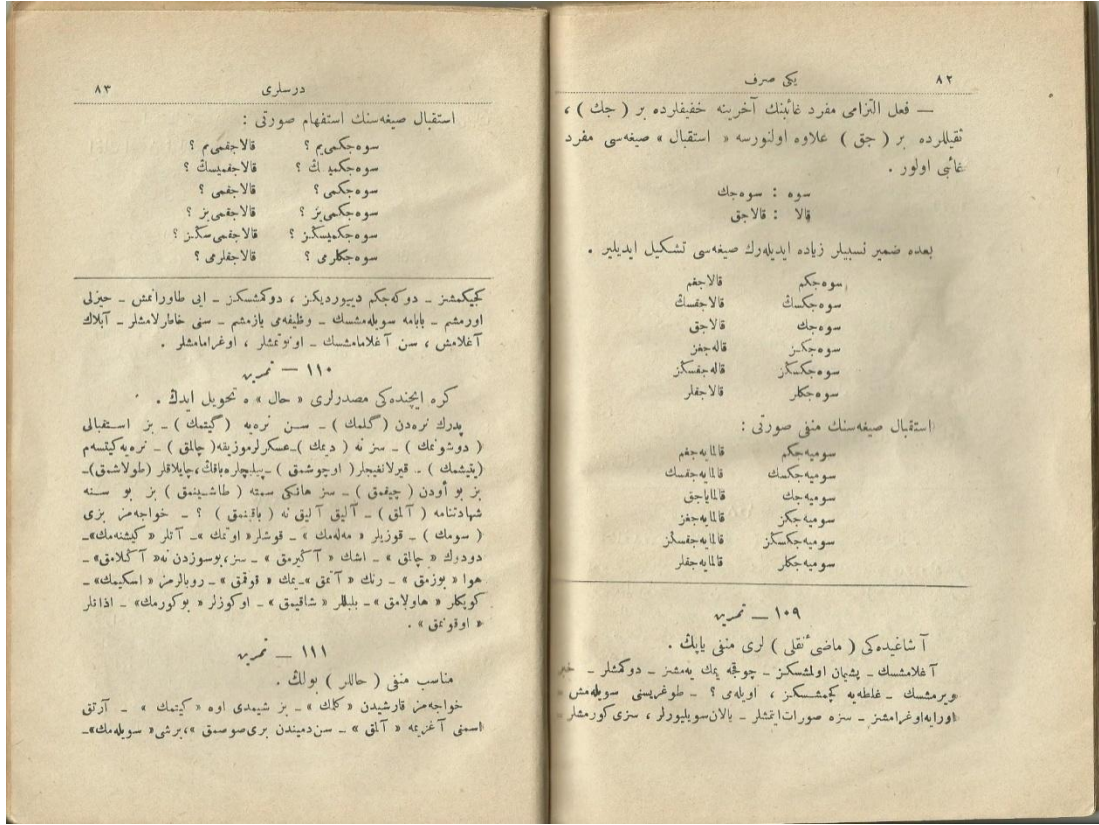 ٨٢
یکی صرف
— فعل التزامی مفرد غائبنك آخرینه خفیفلرده بر ( جك ) ،
ثقیللرده بر ( جق ) علاوه اولنورسه « استقبال » صیغه‌سی مفرد
غائبی اولور .
سوه : سوه‌جك
قالا : قالاجق
بعده ضمیر نسبیلر زیاده ایدیله‌رك صیغه‌سی تشکیل ایدیلیر .
سوه‌جکم قالاجغم
سوه‌جکسڭ قالاجقسڭ
سوه‌جك قالاجق
سوه‌جکز قاله‌جغز
سوه‌جکسڭز قاله‌جقسڭز
سوه‌جکلر قالاجقلر
استقبال صیغه‌سنك منفی صورتی :
سومیه‌جکم قالمایه‌جغم
سومیه‌جکسك قالمایه‌جقسك
سومیه‌جك قالمایاجق
سومیه‌جکز قالمایه‌جغز
سومیه‌جکسڭز قالمایه‌جقسڭز
سومیه‌جکلر قالمایه‌جقلر
١٠٩ — تمرین
آشاغیده‌کی ( ماضیٔ نقلی ) لری منفی یاپڭ .
آغلامشسك ـ پشیمان اولمشسکز ـ چوقجه یمك یه‌مشز ـ دوکمشلر ـ خبر
ویرمشسك ـ غلطه‌یه کچمشسکز ، اویله‌می ؟ ـ طوغریسنی سویله‌مش ـ
اورایه اوغرامشز ـ سزه صورات ایتمشلر ـ یالان سویلیورلر ، سزی کورمشلر ـ
درسلری
٨٣
استقبال صیغه‌سنك استفهام صورتی :
سوه‌جکمی‌یم ؟ قالاجقمی‌یم ؟
سوه‌جکمیسڭ ؟ قالاجقمیسڭ ؟
سوه‌جکمی ؟ قالاجقمی ؟
سوه‌جکمی‌یز ؟ قالاجقمی‌یز ؟
سوه‌جکمیسڭز ؟ قالاجقمی‌سڭز ؟
سوه‌جکلرمی ؟ قالاجقلرمی ؟
کجیکمشز ـ دوکه‌جکم دییوردیکز ، دوکمشسکز ـ ایی طاورانمش ـ حیزلی
اورمشم ـ بابامه سویله‌مشسك ـ وظیفه‌می یازمشم ـ سنی خاطرلامشلر ـ آبلاك
آغلامش ، سن آغلامامشسك ـ اونوتمشلر ، اوغرامامشلر .
١١٠ — تمرین
کره ایچنده‌کی مصدرلری « حال » ه تحویل ایدڭ .
پدرك نره‌دن ( گلمك ) ـ سن نره‌یه ( گیتمك ) ـ بز استقبالی
( دوشونمك ) ـ سز نه ( دیمك ) ـ عسکرلر موزیقه ( چالمق ) ـ نره‌یه کیتسه‌م
( یتیشمك ) ـ قیرلانغیجلر ( اوچوشمق ) ـ پیلیچلره باقڭ ، چایلاقلر ( طولاشمق ) ـ
بز بو أودن ( چیقمق ) ـ سز هانکی سمته ( طاشینمق ) بز بو سنه
شهادتنامه ( آلمق ) ـ آلیق آلیق نه ( باقینمق ) ؟ ـ خواجه‌مز بزی
( سومك ) ـ قوزیلر « مه‌له‌مك » ـ قوشلر « اوتمك » ـ آتلر « کیشنه‌مك » ـ
دودوك « چالمق » ـ اشك « آڭیرمق » ـ سز ، بوسوزدن نه « آڭلامق » ـ
هوا « بوزمق » ـ رنك « آتمق » ـ یمك « قوقمق » ـ روبالرمز « اسکیمك » ـ
کوپکلر « هاولامق » ـ بلبللر « شاقیمق » ـ اوکوزلر « بوکورمك » ـ اذانلر
« اوقونمق » .
١١١ — تمرین
مناسب منفی ( حاللر ) بولڭ .
خواجه‌مز قارشیدن « کلمك » ـ بز شیمدی اوه « کیتمك » ـ آرتق
اسمنی آغزیمه « آلمق » ـ سن دمیندن بری صوصمق » ، برشی « سویله‌مك » ـ